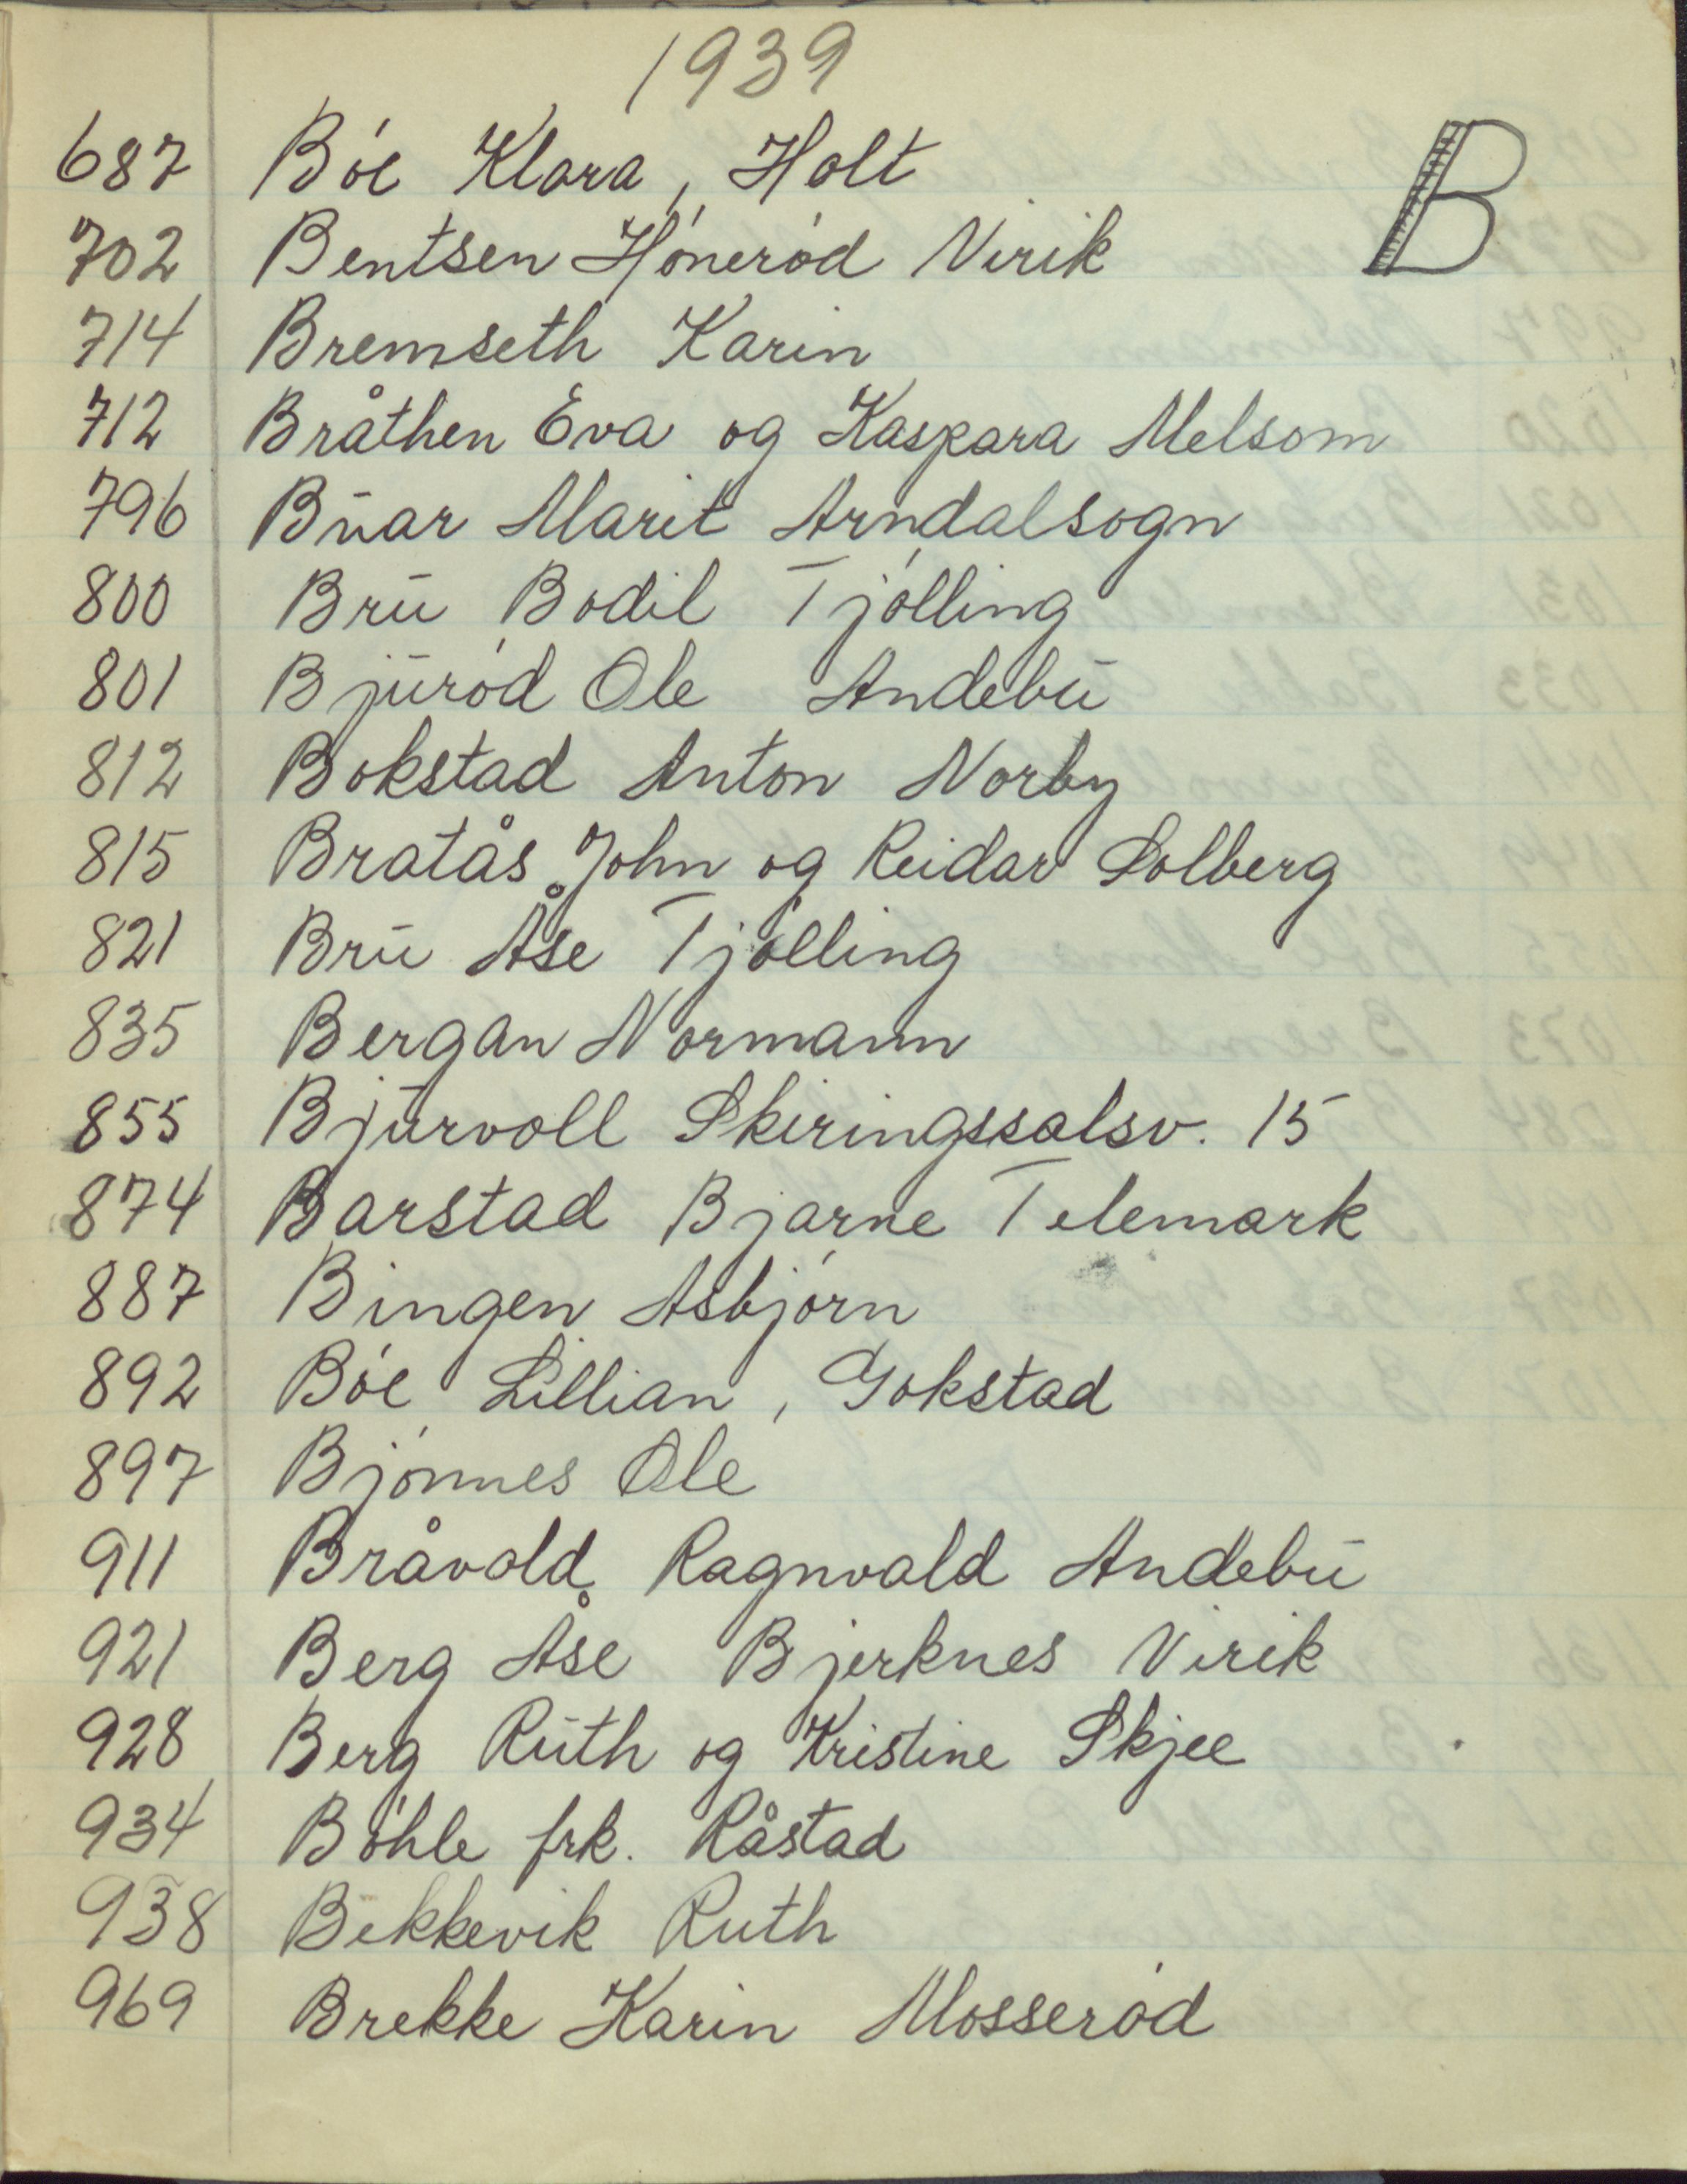 1939
B
687 Bóe Klara, Holt
702 Bentsen Hóneród Virik
714 Bremseth Karin
712 Bråthen Eva og Kaspara Melsom
796 Būar Marit Arndalsogn
800 Brū Bodil Tjólling
801 Bjūród Ole Andebū
812 Bokstad Anton Norby
815 Bratås John og Reidar Solberg
821 Brū Åse Tjólling
835 Bergan Normann
855 Bjūrvoll Skiringssalsv. 15
874 Barstad Bjarne Telemark
887 Bingen Asbjórn
892 Bóe Lillian, Gokstad
897 Bjónnes Ole
911 Bråvold Ragnvald Andebū
921 Berg Åse Bjerknes Virik
928 Berg Rūth og Kristine Skjee
934 Bóhle frk. Råstad
938 Bekkevik Ruth
969 Brekke Karin Mosseród